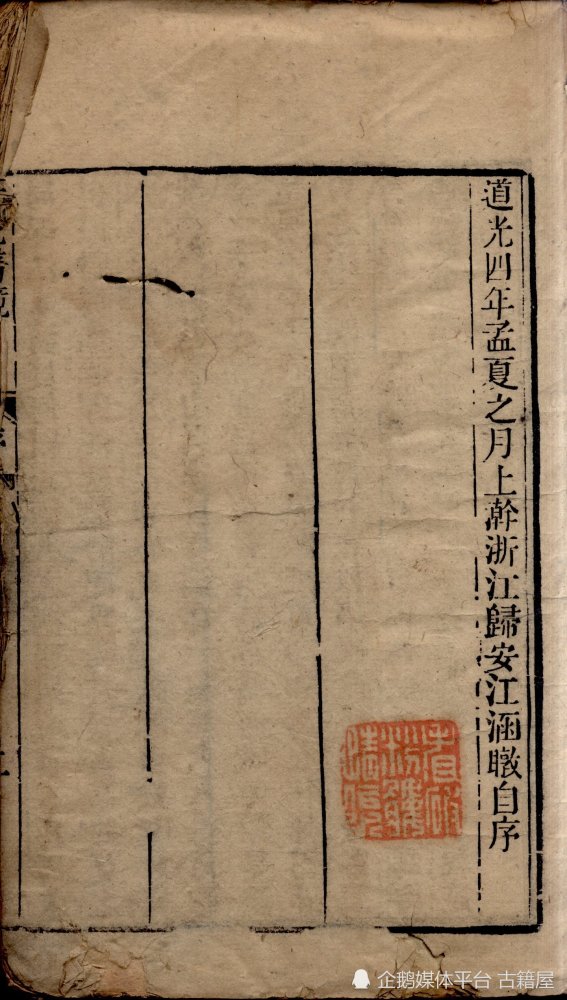 道光四年孟夏之月上澣浙江歸安江涵暾自序
企鹅媒体平台 古籍屋